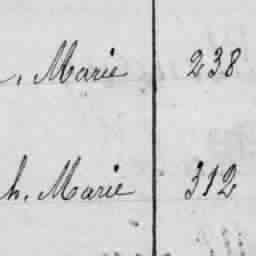 ., Marie 238
h. Marie 312